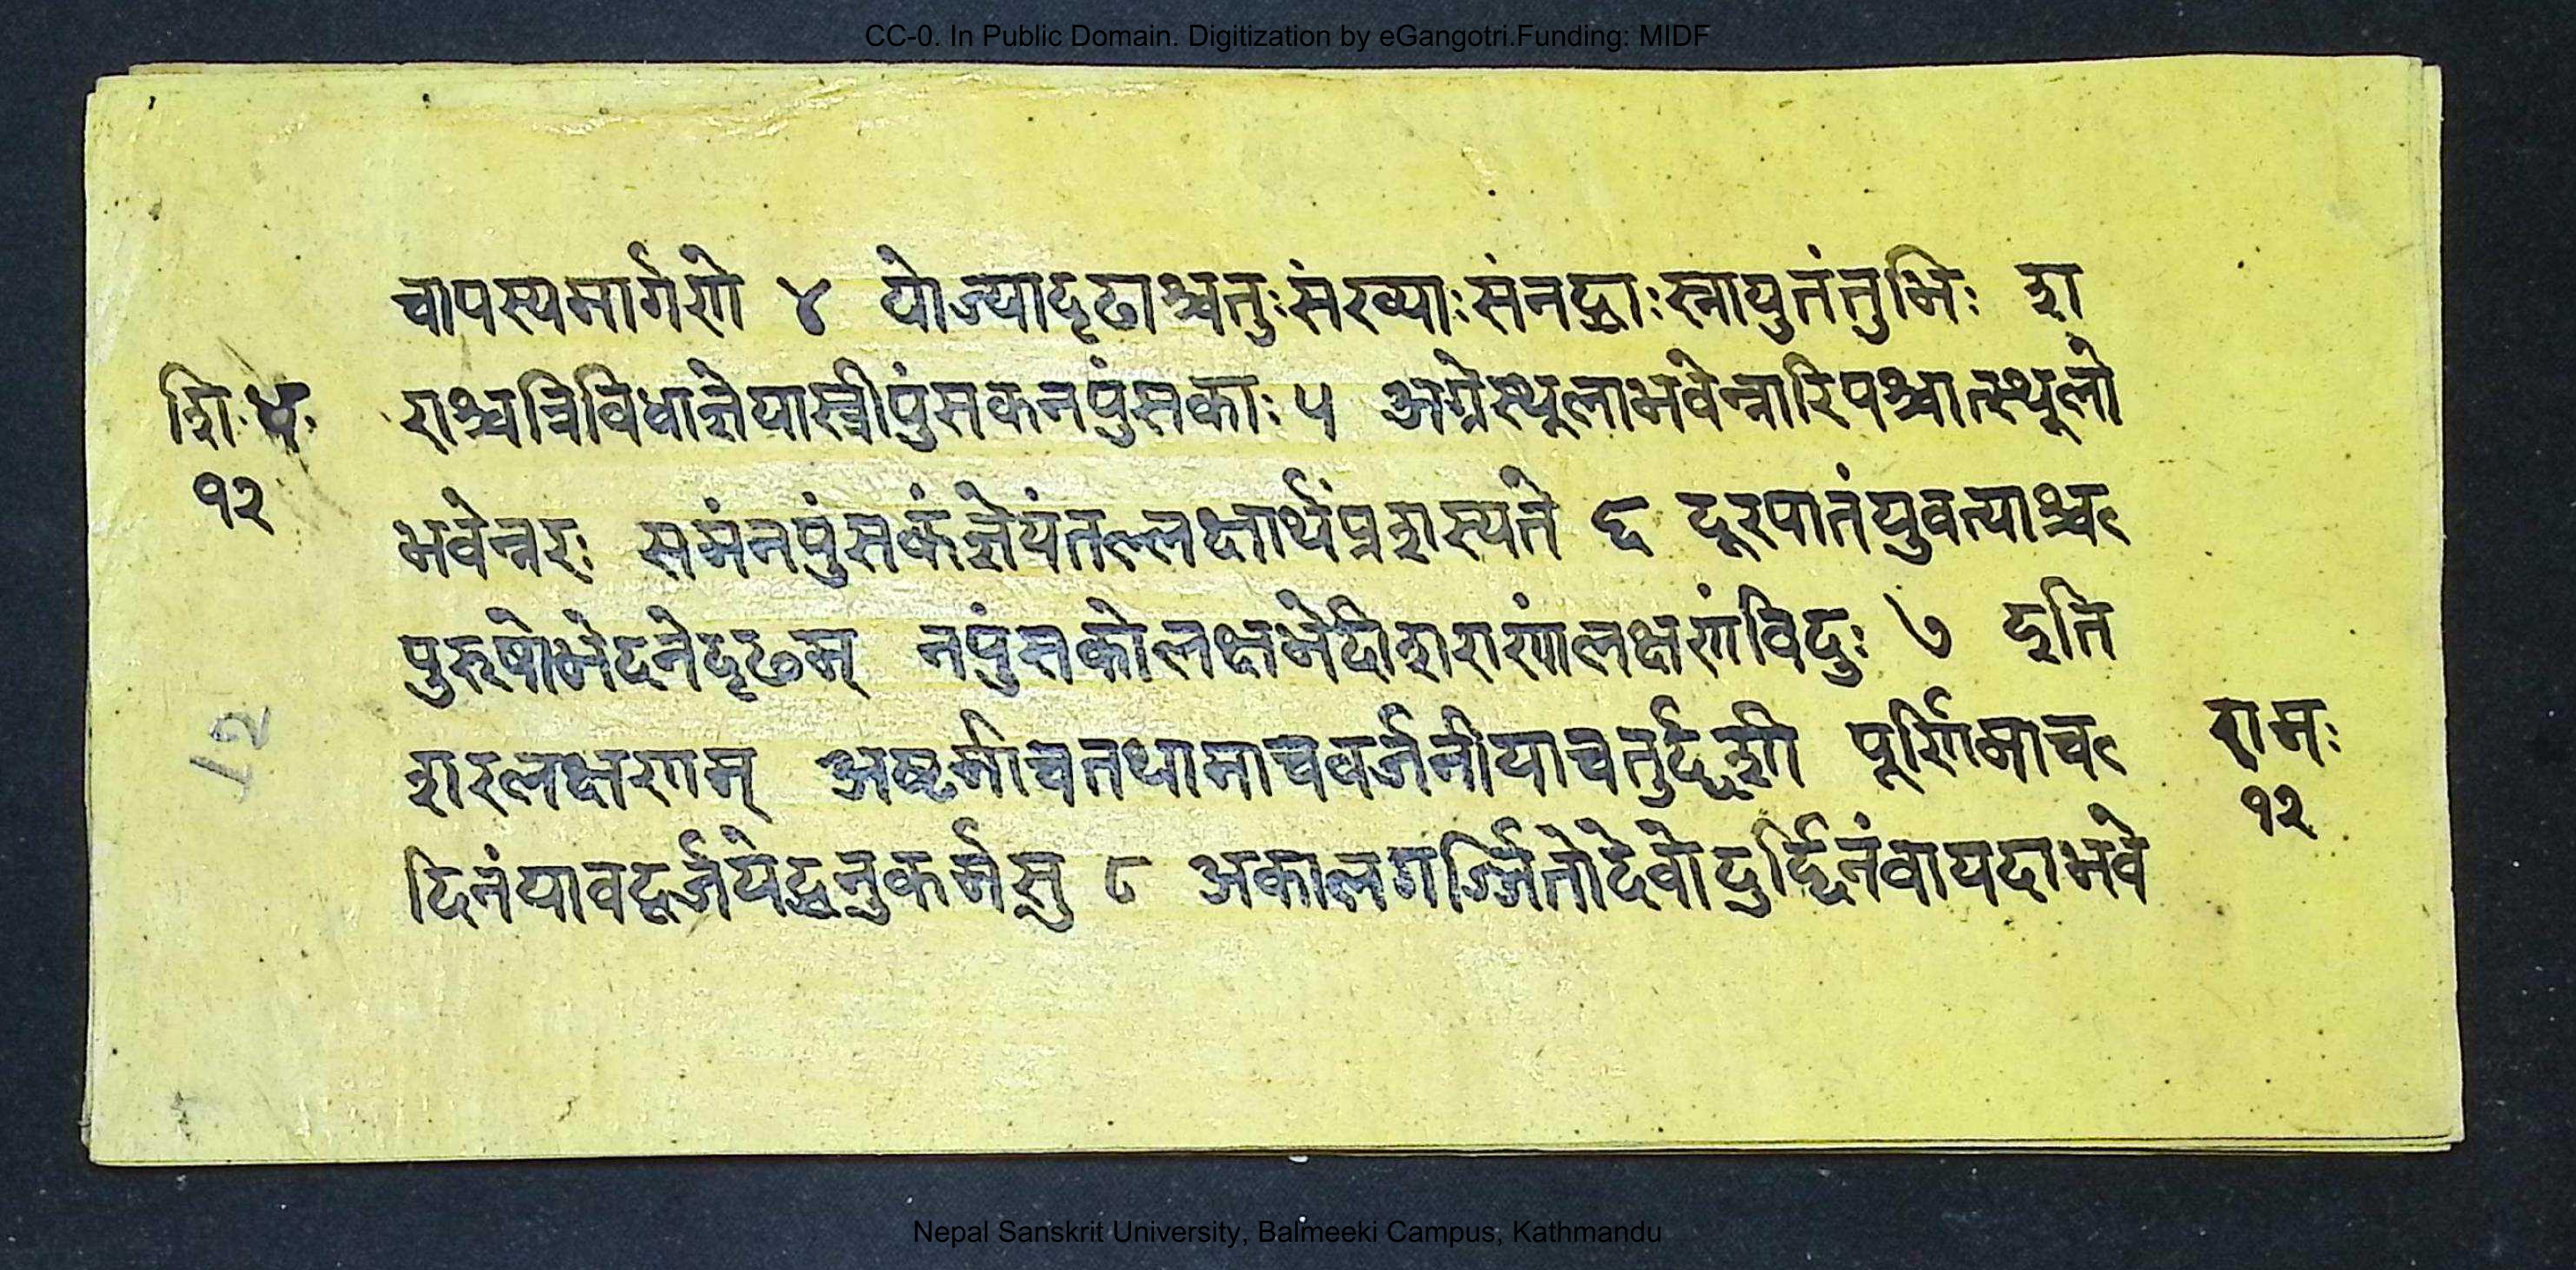 CC-0. In Public Domain. Digitization by eGangotri.Funding: MIDF
चापस्यमार्गणे ४ योज्यादृढाश्चतुःसंख्याःसंनद्धाःस्नायुतंतुभिः श
शि·ध· राश्चत्रिविधाज्ञेयास्त्रीपुंसकनपुंसकाः ५ अग्रेस्थूलाभवेन्नारिपश्चात्स्थूलो
१२
भवेन्नरः समंनपुंसकंज्ञेयंतल्लक्षार्थंप्रशस्यते ६ दूरपातंयुवत्याश्च
पुरुषोभेदनेदृढम् नपुंसकोलक्षभेदीशराणांलक्षणंविदुः ७ इति
12
शरलक्षणम् अष्टमीचतथामाचवर्जनीयाचतुर्द्दशी पूर्णिमाच रामः
१२
दिनंयावद्वर्जयेद्धनुकर्मसु ८ अकालगर्ज्जितोदेवोदुर्द्दिनंवायदाभवे
Nepal Sanskrit University, Balmeeki Campus, Kathmandu